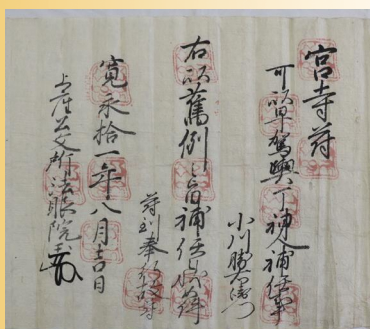 宮寺符
可以早駕輿丁神人補任事
小川勝右衛門
右以舊例之旨補任如件
符到奉行故符
寛永拾一年八月吉日
公文所法眼院